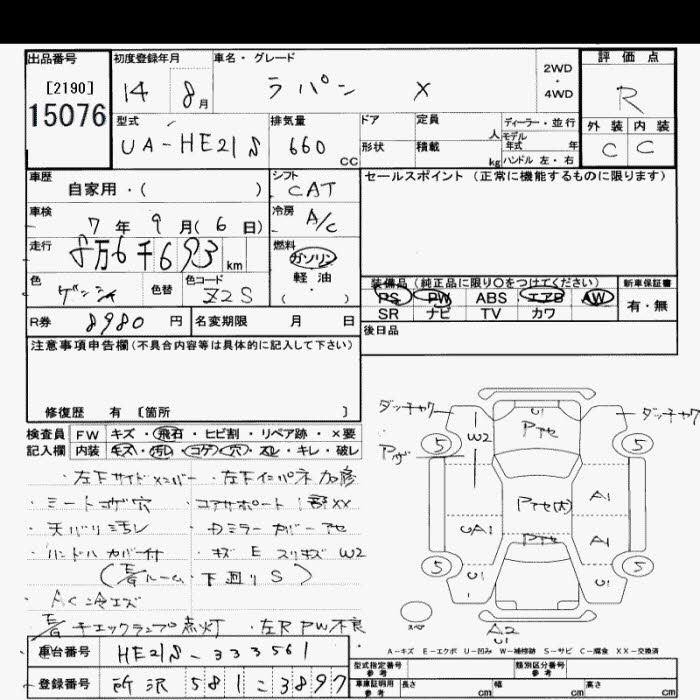 出品番号
[2190]
15076
初度登録年月
14 8月
車名・グレード
ラパン X
2WD
・
4WD
評価点
R
外装 内装
C C
型式
UA-HE21S
排気量
660 CC
ドア
定員 人
形状
積載 kg
ディーラー・並行
モデル
年式 年
ハンドル 左・右
車歴
自家用・( )
シフト
CAT
セールスポイント (正常に機能するものに限ります)
車検
7年 9月(6日)
冷房
A/C
走行
8万6千693 km
燃料
ガソリン
軽油
( )
色
色替
色コード
Z2S
装備品 (純正品に限り○をつけてください)
PS PW ABS エアB AW
SR ナビ TV カワ
新車保証書
有・無
R券 8980 円
名変期限 月 日
後日品
注意事項申告欄 (不具合内容等は具体的に記入して下さい)
修復歴 有 〔箇所 〕
検査員
記入欄
FW キズ・飛石・ヒビ割・リペア跡・×要
内装 キズ・汚レ・コゲ・穴・スレ・キレ・破レ
・左F サイドメンバー ・左F インパネ加修
・シートコゲ穴 ・コアサポート1部XX
・天バリ汚レ ・Dミラーカバーアセ
・ハンドルカバー付 ・キズ E スリキズ W2
ルーム・下廻りS)
・AC冷エズ
チェックランプ点灯 ・左R PW不良
ダッチャク
ダッチャク
U1
Pアセ
W2
5
5
Pアセ(大)
A1
UA1
Pアセ
A1
5
5
U1
U1
スペア
A2
U1
A-キズ E-エクボ U-凹み W-補修跡 S-サビ C-腐食 XX-交換済
車台番号 HE21S-333561
登録番号 所沢 581 こ 3897
型式指定番号
参考
類別区分番号
参考
車庫証明用
参考
長さ cm 幅 cm 高さ cm